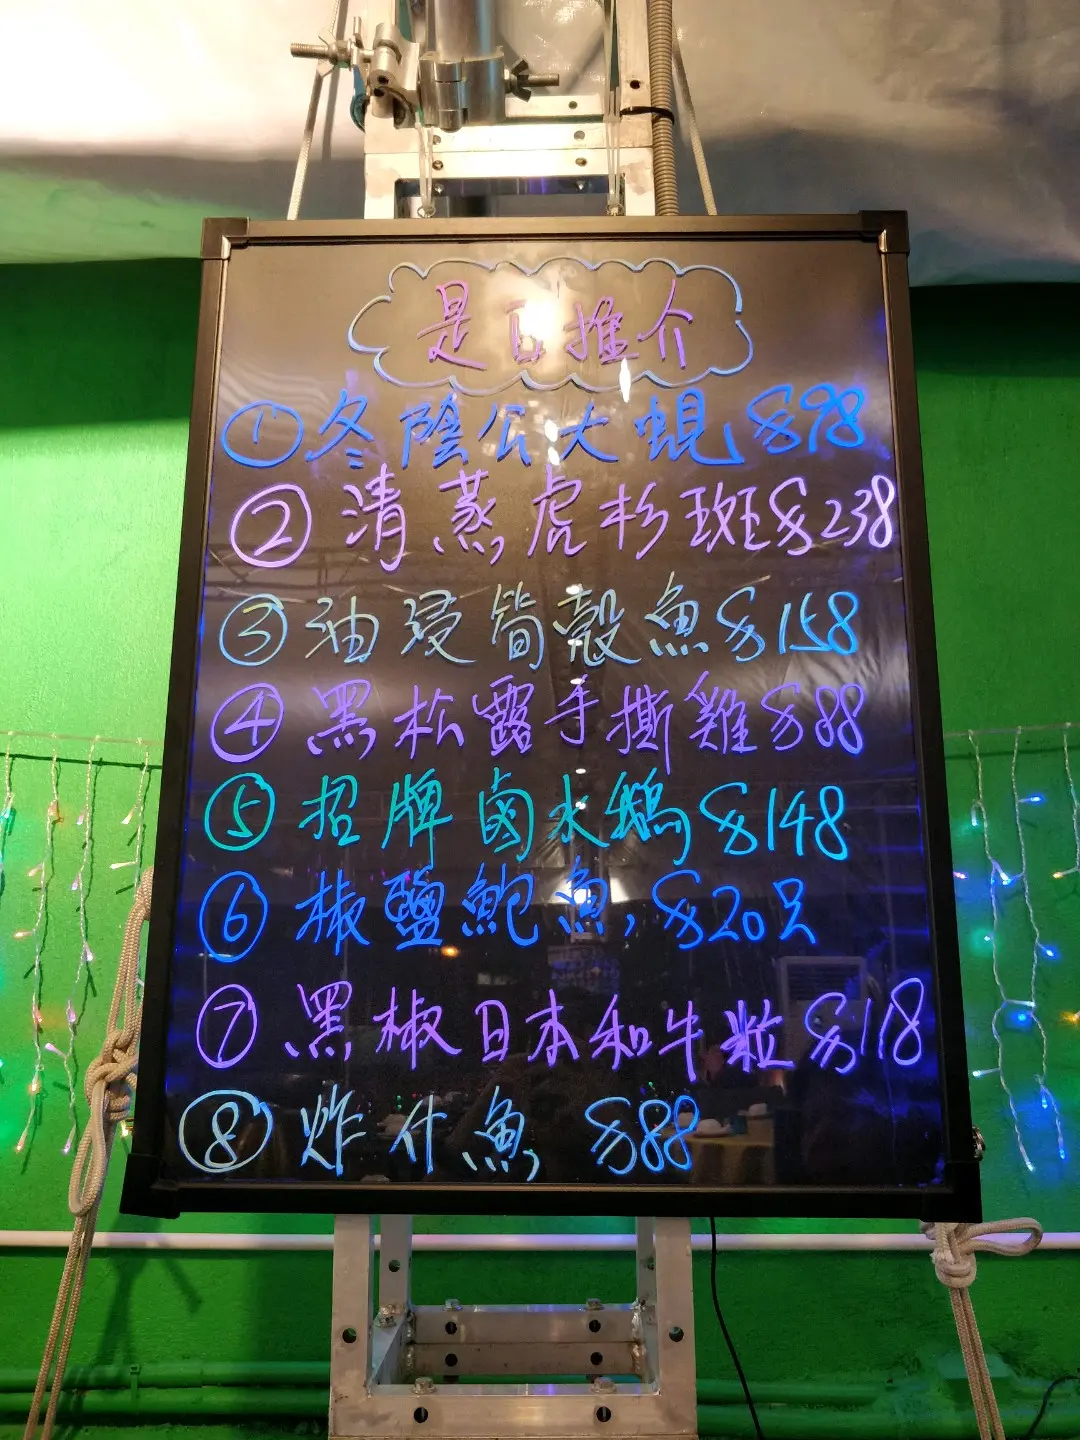 是日推介
① 冬陰公大蜆 $98
② 清蒸虎杉斑 $238
③ 油浸筍殼魚 $158
④ 黑松露手撕雞 $88
⑤ 招牌鹵水鵝 $148
⑥ 椒鹽鮑魚, $20只
⑦ 黑椒日本和牛粒 $118
⑧ 炸什魚 $88